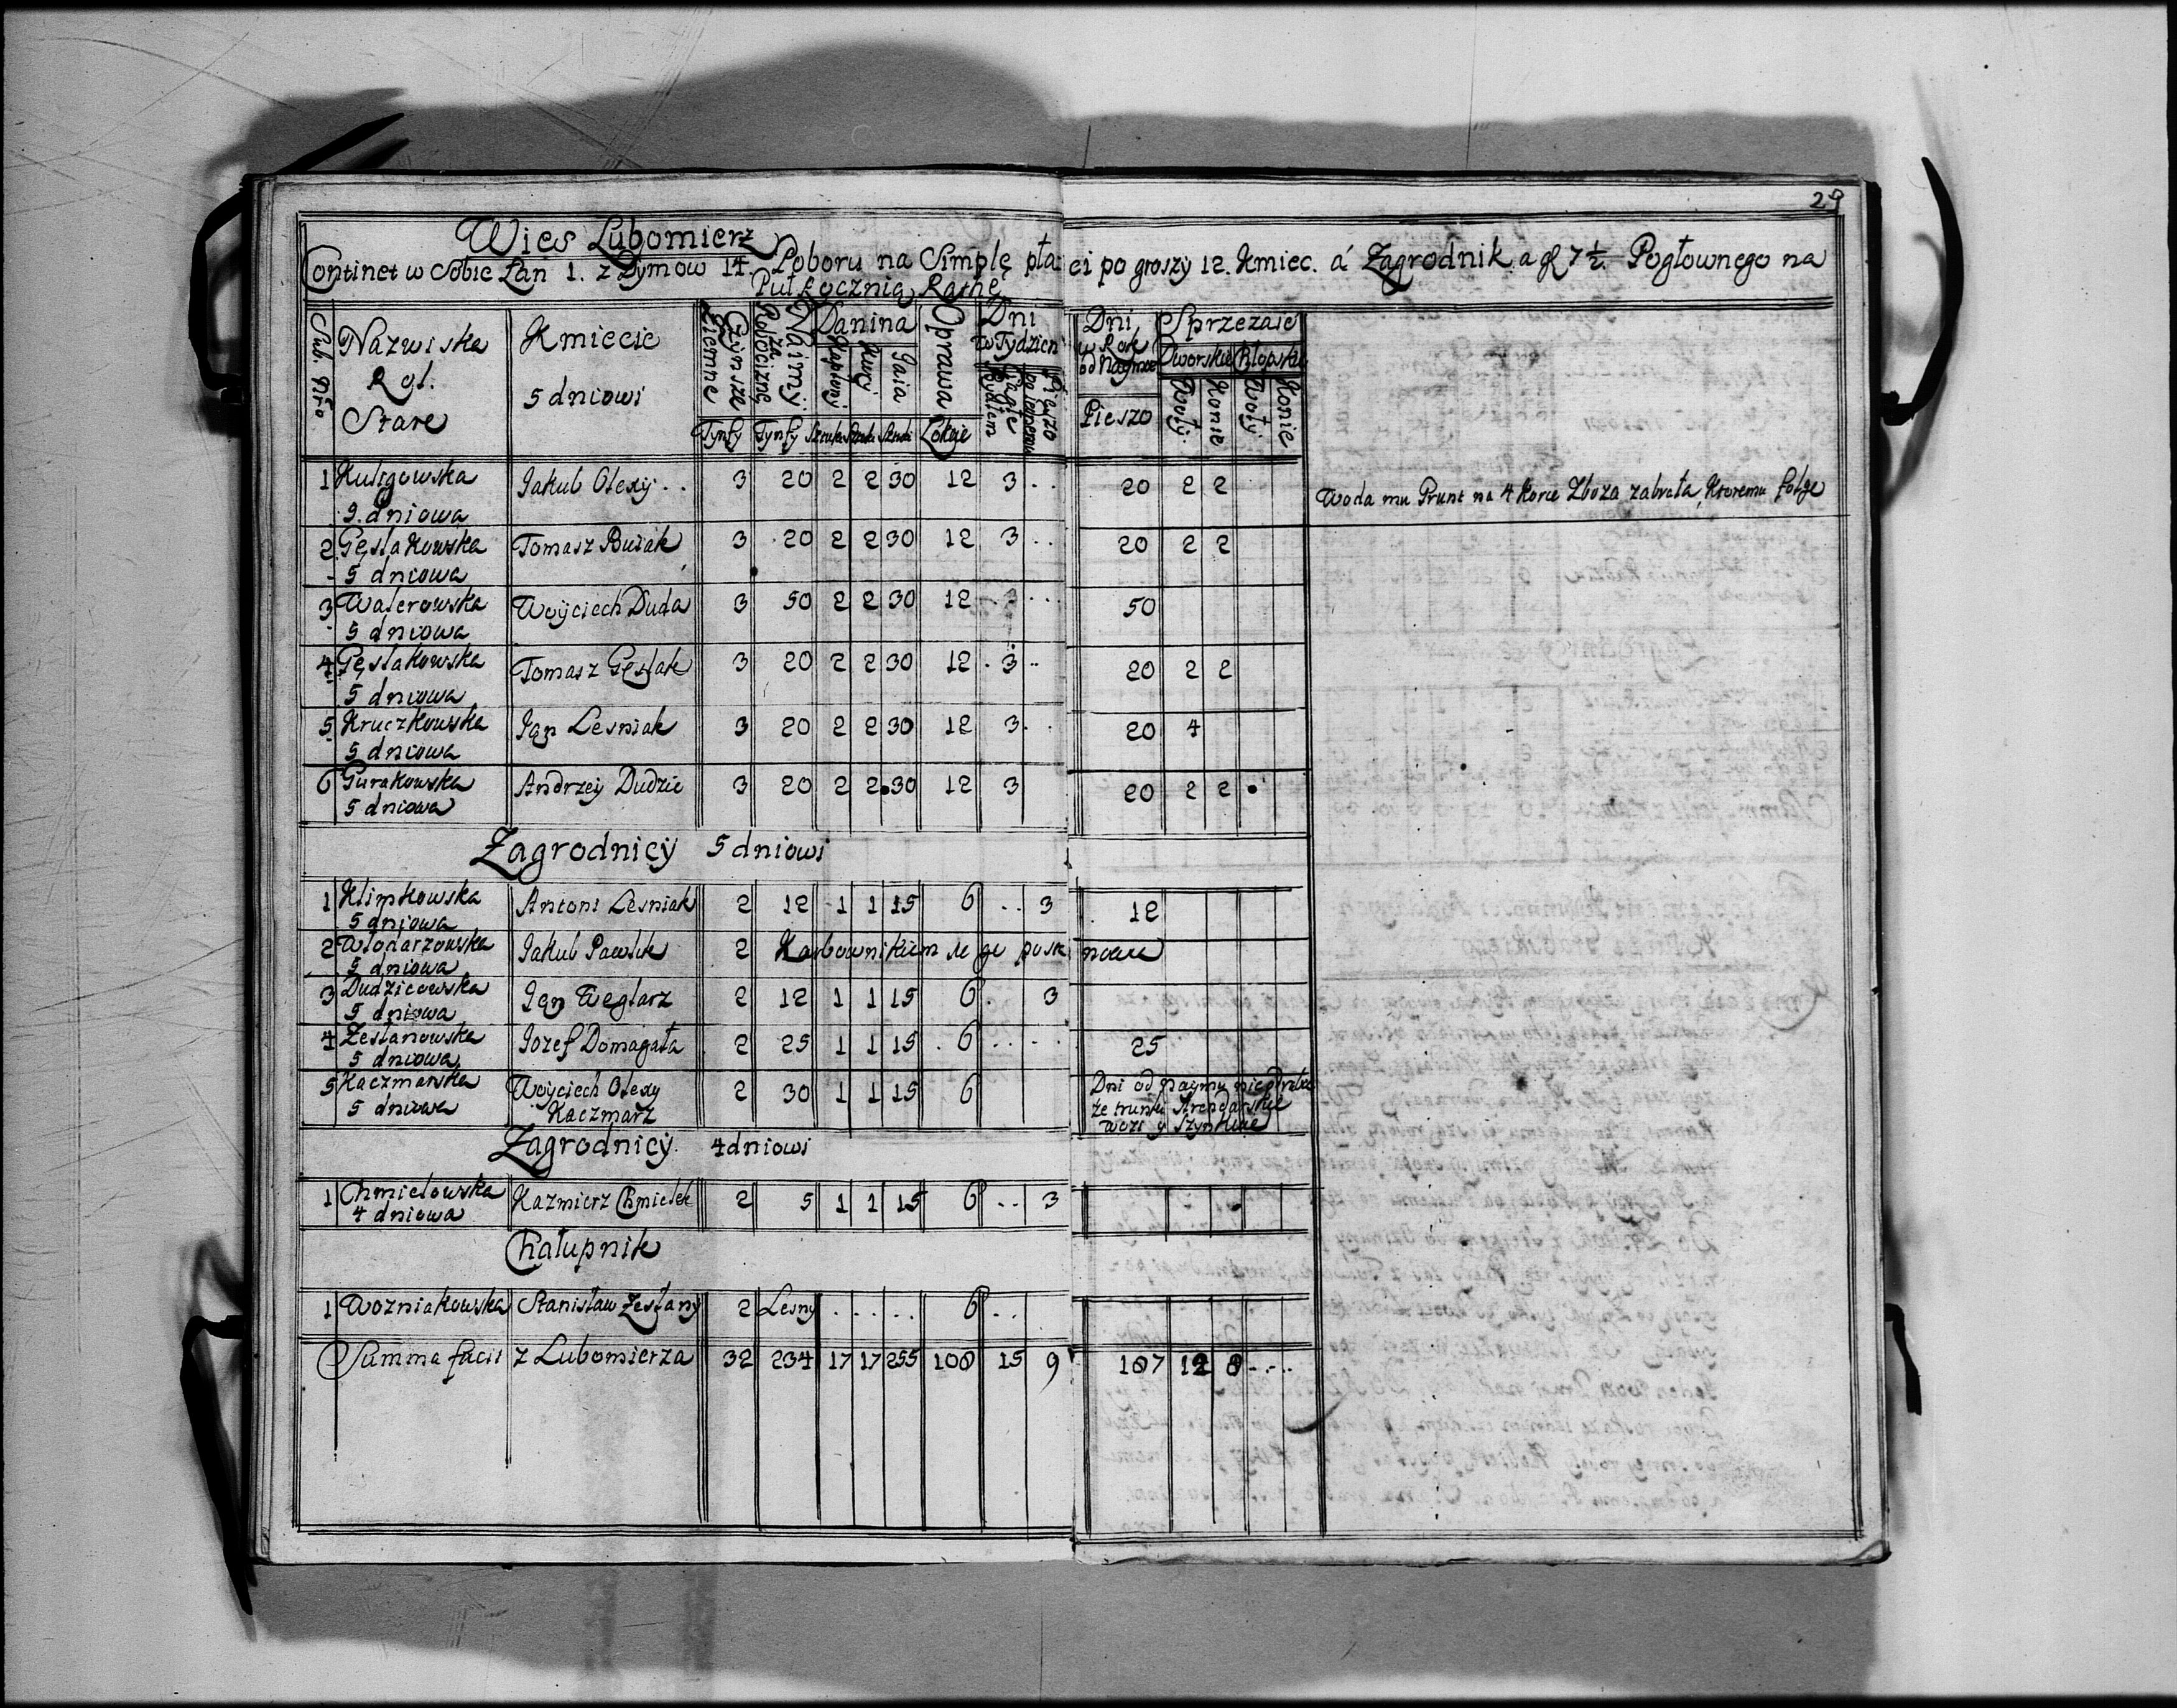 29
Wies Lubomierz
Continet w Sobie Łan 1. z Dymow 14. Poboru na Simplę płaci po groszy 12. Kmiec. á Zagrodnik. a gl 7 1/2. Pogłownego na
Puł Rocznią Rathę
Sub. Nro Nazwiska Rol. Stare Kmiecie 5 dniowi Czynsze Ziemne Tynfy Naimy za Robociznę Tynfy Danina Kapłony Sztuki Kury Sztuki Jaia Sztuki Oprawa Łokcie Dni w Tydzien Ciągłe Bydłem Pieszo Dni w Rok od Naymow Pieszo Sprzezaie Dworskie Woły Konie Chłopskie Woły Konie
1 Kuligowska Jakub Olexy . . 3 20 2 2 30 12 3 . . 20 2 2 Woda mu Grunt na 4 Korce Zboza zabrała, Ktoremu folge
9. dniowa
2 Gęsłakowska Tomasz Busak 3 20 2 2 30 12 3 . . 20 2 2
5 dniowa
3 Walerowska Woyciech Duda 3 50 2 2 30 12 . 3 . . . 50
5 dniowa
4 Gęsłakowska Tomasz Gęsłak 3 20 2 2 30 12 . 3 . . 20 2 2
5 dniowa
5 Kruczkowska Jan Lesniak 3 20 2 2 30 12 3 . . 20 4
5 dniowa
6 Gurakowska Andrzey Dudzic 3 20 2 2 30 12 3 20 2 2
5 dniowa
Zagrodnicy 5 dniowi
1 Klimkowska Antoni Lesniak 2 12 1 1 15 6 . . 3 12
5 dniowa
2 Włodarzowska Jakub Pawlik 2 Karbownikiem
5 dniowa
3 Dudzicowska Jan Węglarz 2 12 1 1 15 6 . 3
5 dniowa
4 Zesłanowska Jozef Domagała 2 25 1 1 15 . 6 . . . . 25
5 dniowa
5 Kaczmarska Woyciech Olexy 2 30 1 1 15 6 Dni od naymu
5 dniowa Kaczmarz że trunki Arendarskie
wozi y szynkuie
Zagrodnicy 4 dniowi
1 Chmielowska Kazmierz Chmielek 2 5 1 1 15 6 . . 3
4 dniowa
Chałupnik
1 Wozniakowska Stanisław Zesłany 2 Lesny . . . . . 6 . .
Summa facit z Lubomierza 32 234 17 17 255 108 15 9 187 12 8 . . . .